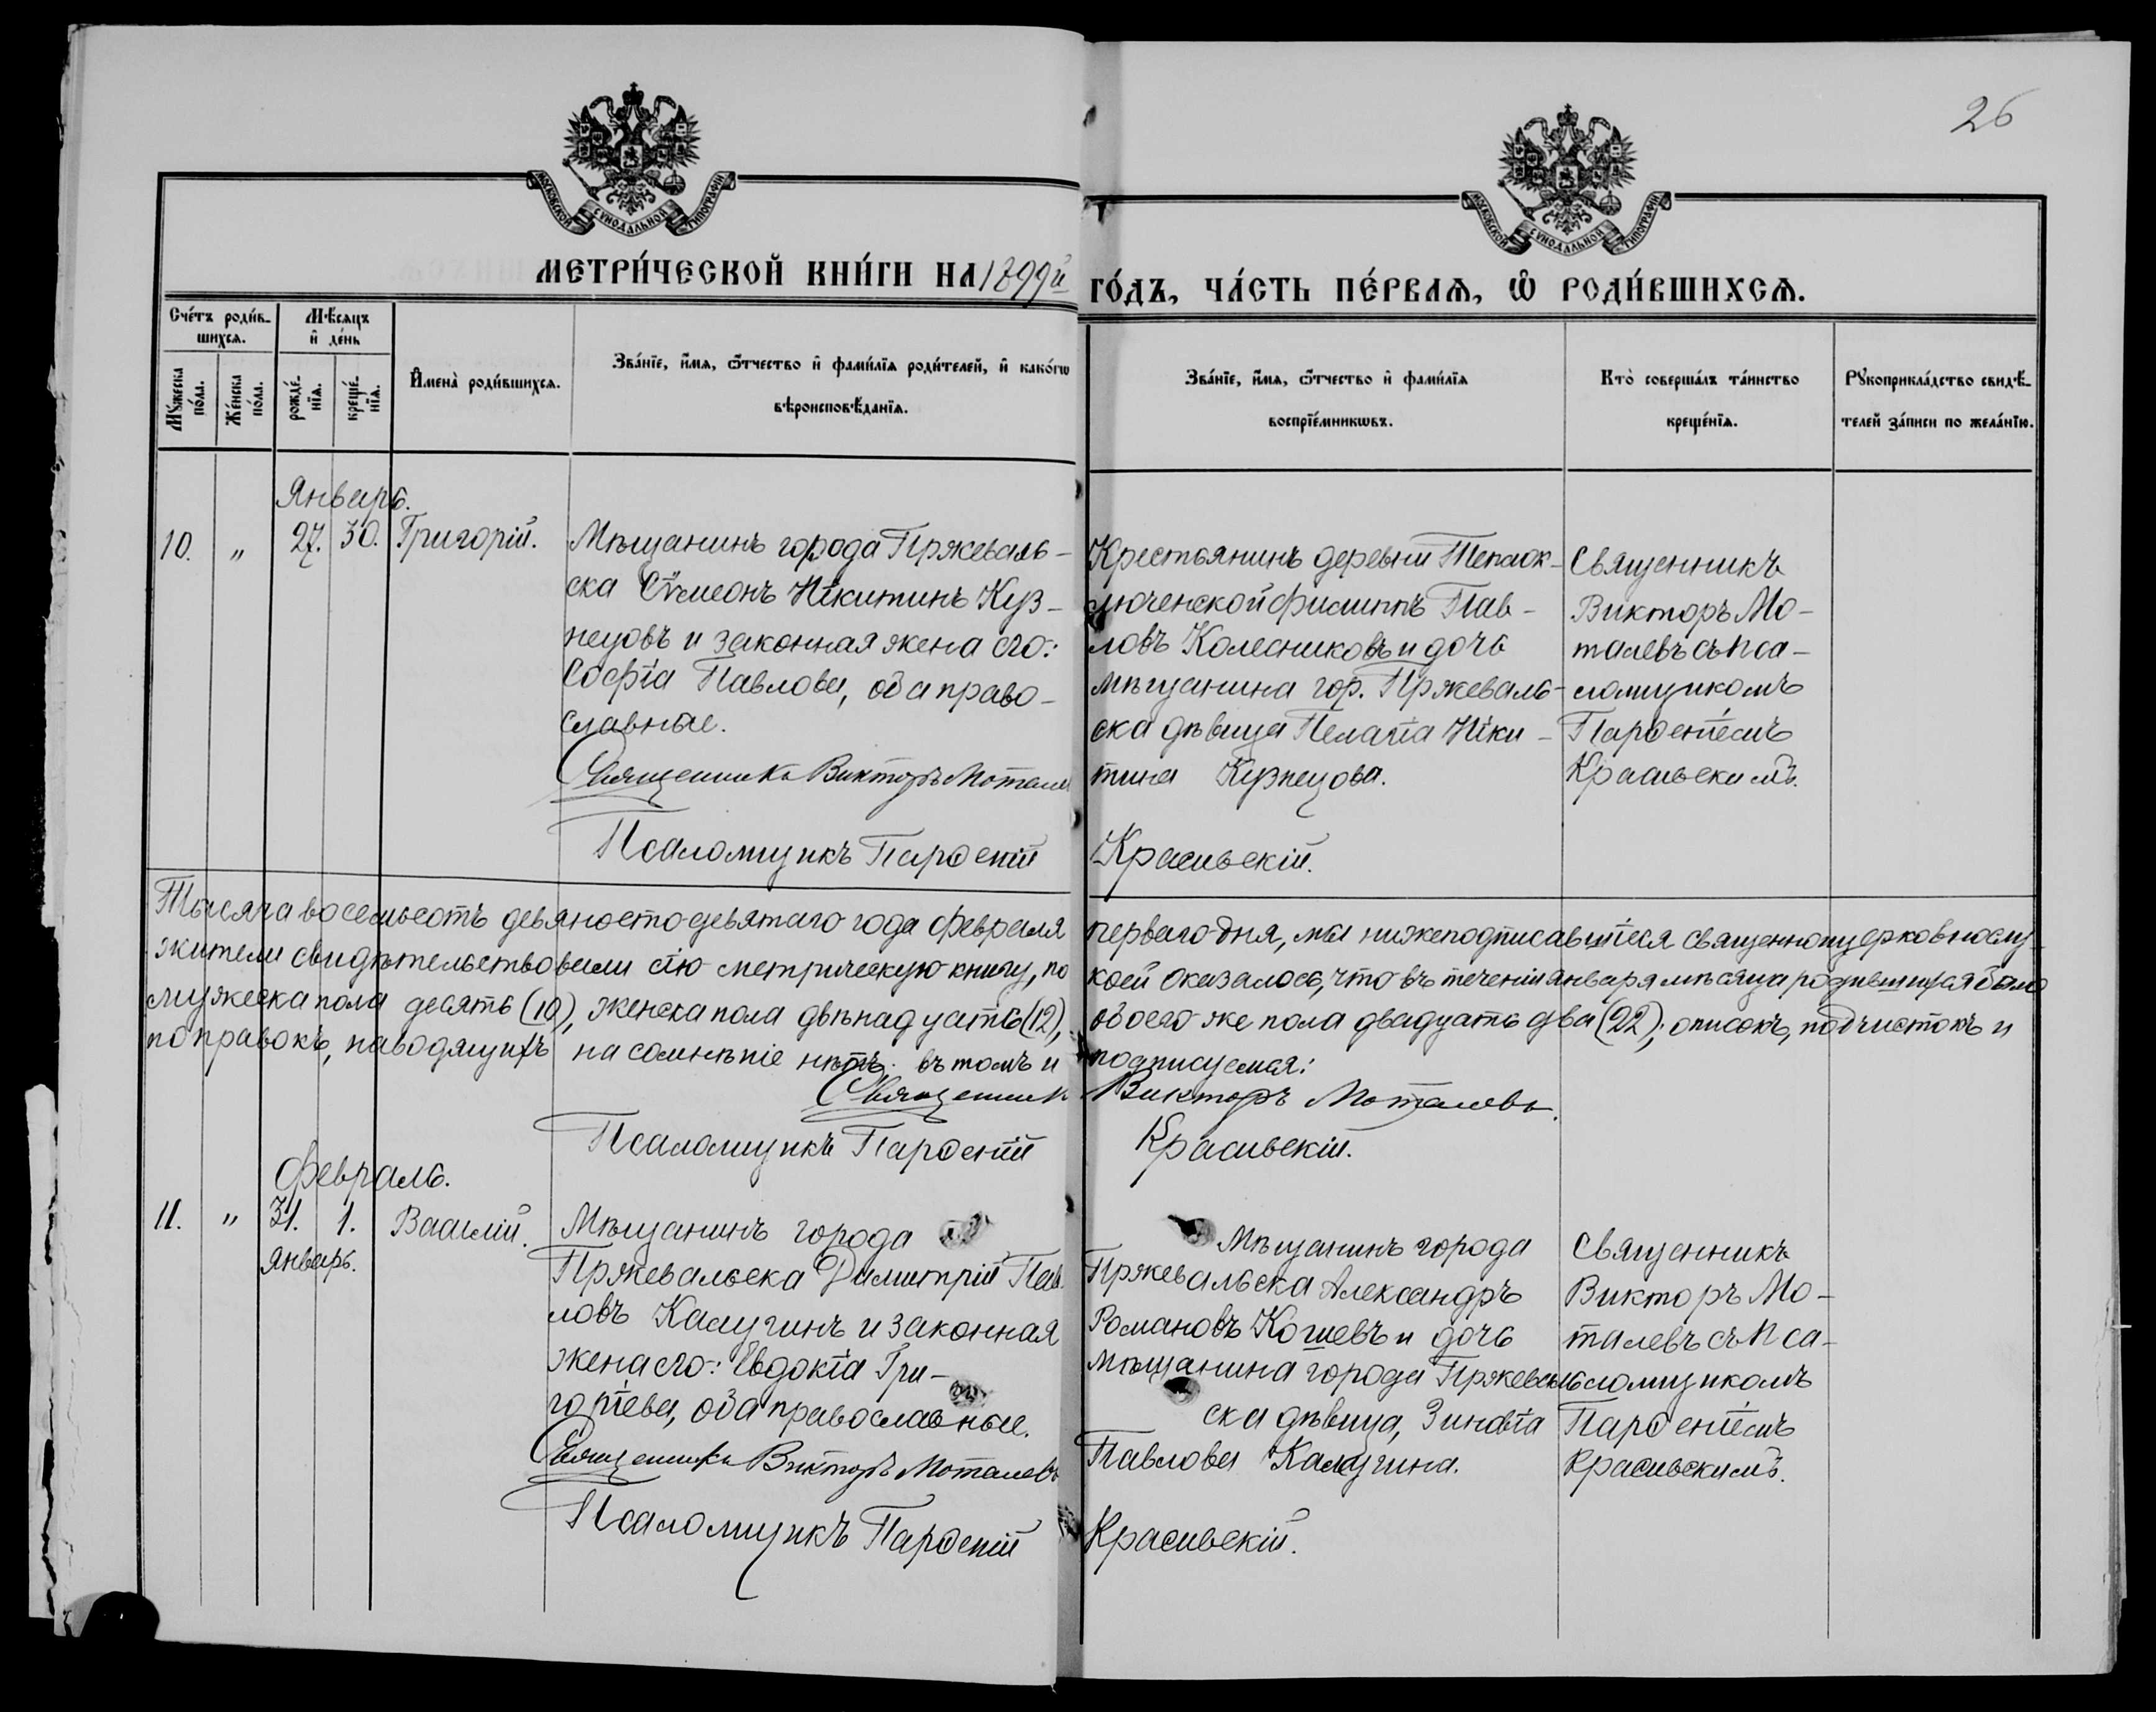 26
МОСКОВСКОЙ СУНОДАЛЬНОЙ ТИПОГРАФІИ
МОСКОВСКОЙ СУНОДАЛЬНОЙ ТИПОГРАФІИ
МЕТРИ́ЧЕСКОЙ КНИ́ГИ НА 1899й ГО́ДЪ, ЧА́СТЬ ПЕ́РВАЯ, Ѡ РОДИ́ВШИХСЯ.
Сче́тъ роди́в-
шихся.
Му́жеска по́ла.
Же́нска по́ла.
Мѣ́сяцъ
и де́нь
рожде́-
нїя.
креще́-
нїя.
И҆мена̀ роди́вшихся.
Зва́нїе, и҆́мя, ѻ҆́тчество и҆ фами́лїя роди́телей, и҆ како́гѡ
вѣроисповѣ́данїя.
Зва́нїе, и҆́мя, ѻ҆́тчество и҆ фами́лїя
воспрїе́мникѡвъ.
Кто̀ соверша́лъ та́инство
креще́нїя.
Рꙋкоприкла́дство свидѣ́-
телей за́писи по жела́нїю.
Январь.
10. " 27. 30. Григорій.
Мѣщанинъ города Пржеваль-
ска Сѵмеонъ Никитинъ Куз-
нецовъ и законная жена его:
Софія Павлова, оба право-
славные.
Священникъ Викторъ Моталевъ
Псаломщикъ Парѳеній
Крестьянинъ деревни Теплок-
люченской Филиппъ Пав-
ловъ Колесниковъ и дочь
мѣщанина гор. Пржеваль-
ска дѣвица Пелагія Ники-
тина Кузнецова.
Красивскій.
Священникъ
Викторъ Мо-
талевъ съ пса-
ломщикомъ
Парѳеніемъ
Красивскимъ.
Тысяча восемьсотъ девяносто девятаго года февраля первого дня, мы нижеподписавшіеся священноцерковнослу-
жители свидѣтельствовали сію метрическую книгу, по коей оказалось, что въ теченіи января мѣсяца родившихся было
мужеска пола десять (10), женска пола двѣнадцать (12), обоего же пола двадцать два (22); описокъ, подчистокъ и
поправокъ, наводящихъ на сомнѣніе нѣтъ. въ томъ и подписуемся:
Священникъ Викторъ Моталевъ.
Псаломщикъ Парѳеній Красивскій.
Февраль.
11. " 31. 1. Василій.
Январь.
Мѣщанинъ города
Пржевальска Димитрій Пав
ловъ Калугинъ и законная
жена его: Евдокія Гри-
горіева, оба православные.
Священникъ Викторъ Моталевъ
Псаломщикъ Парѳеній
Мѣщанинъ города
Пржевальска Александръ
Романовъ Кошевъ и дочь
мѣщанина города Пржеваль
ска дѣвица, Зиновія
Павлова Калугина.
Красивскій.
Священникъ
Викторъ Мо-
талевъ съ пса-
ломщикомъ
Парѳеніемъ
Красивскимъ.